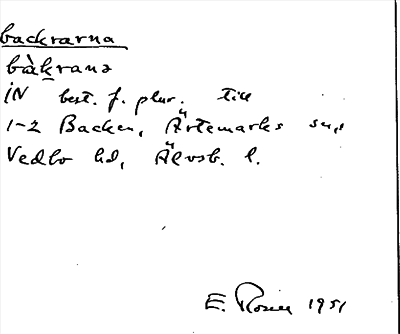 backrarna
bàkrana
IN best. f. plur. till
1-2 Backen, Ärtemarks sn,
Vedbo hd, Älvsb. l.
E. Rosén 1951